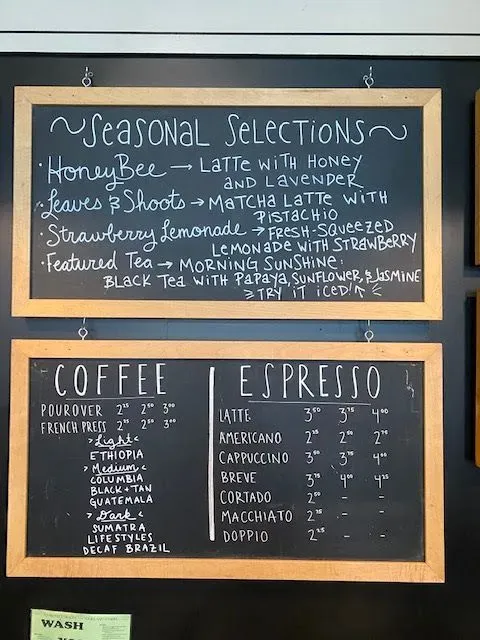 ~SEASONAL SELECTIONS~
· HoneyBee → LATTE WITH HONEY
AND LAVENDER
· Leaves & Shoots → MATCHA LATTE WITH
PISTACHIO
· Strawberry Lemonade → FRESH-SQUEEZED
LEMONADE WITH STRAWBERRY
· Featured Tea → MORNING SUNSHINE:
BLACK TEA WITH PAPAYA, SUNFLOWER, & JASMINE
TRY IT ICED!
COFFEE
POUROVER 2²⁵ 2⁵⁰ 3⁰⁰
FRENCH PRESS 2²⁵ 2⁵⁰ 3⁰⁰
Light
ETHIOPIA
Medium
COLUMBIA
BLACK+TAN
GUATEMALA
Dark
SUMATRA
LIFESTYLES
DECAF BRAZIL
ESPRESSO
LATTE 3⁵⁰ 3⁷⁵ 4⁰⁰
AMERICANO 2²⁵ 2⁵⁰ 2⁷⁵
CAPPUCCINO 3⁵⁰ 3⁷⁵ 4⁰⁰
BREVE 3⁷⁵ 4⁰⁰ 4²⁵
CORTADO 2⁵⁰ - -
MACCHIATO 2⁷⁵ - -
DOPPIO 2²⁵ - -
WASH